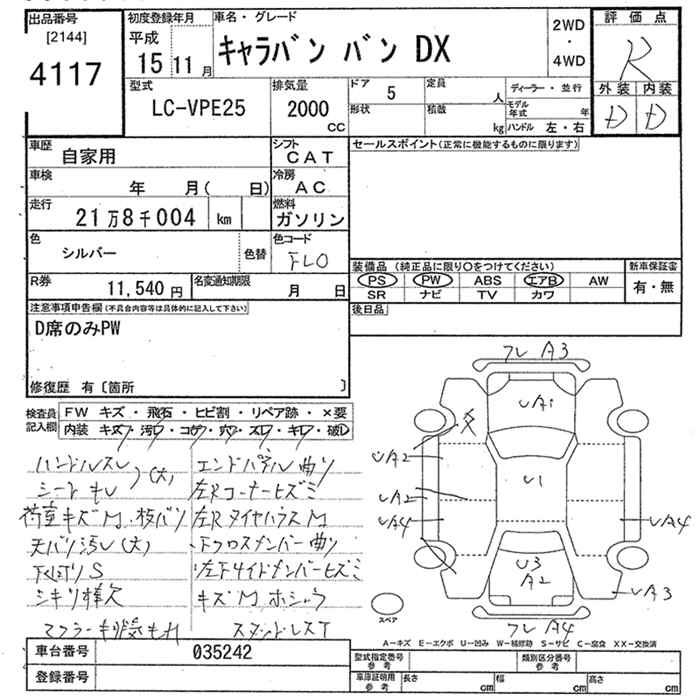 出品番号
[2144]
4117
初度登録年月
平成
15 11月
車名・グレード
キャラバン バン DX
2WD
・
4WD
評価点
R
外装 内装
D D
型式
LC-VPE25
排気量
2000
CC
ドア 5
形状
定員 人
積載 kg
ディーラー・並行
モデル年式 年
ハンドル 左・右
車歴
自家用
シフト
CAT
セールスポイント(正常に機能するものに限ります)
車検
年 月( 日)
冷房
AC
走行
21万8千004 km
燃料
ガソリン
色
シルバー
色替
色コード
FLO
R券
11,540円
名変通知期限
月 日
装備品 (純正品に限り〇をつけてください)
新車保証書
PS PW ABS エアB AW
有・無
SR ナビ TV カワ
後日品
注意事項申告欄(不具合内容等は具体的に記入して下さい)
D席のみPW
修復歴 有〔箇所 〕
検査員
記入欄
FW キズ・飛石・ヒビ割・リペア跡・×要
内装 キズ・汚レ・コゲ・穴・スレ・キレ・破レ
ハンドルスレ
(大)
シートキレ
荷室キズM.板バリ
天バリ汚レ(大)
下廻りS
シキリ棒欠
マフラー排気もれ
エンドパネル曲り
左Rコーナーヒズミ
左RタイヤハウスM
Fクロスメンバー曲り
左Fサイドメンバーヒズミ
キズM ホシュウ
スタッドレスT
フレA3
UA1
UA2
U1
UA2
UA4
UA4
U3
A2
UA3
フレA4
スペア
A-キズ E-エクボ U-凹み W-補修跡 S-サビ C-腐食 XX-交換済
車台番号
035242
登録番号
型式指定番号
参考
類別区分番号
参考
車庫証明用
参考
長さ cm
幅 cm
高さ cm